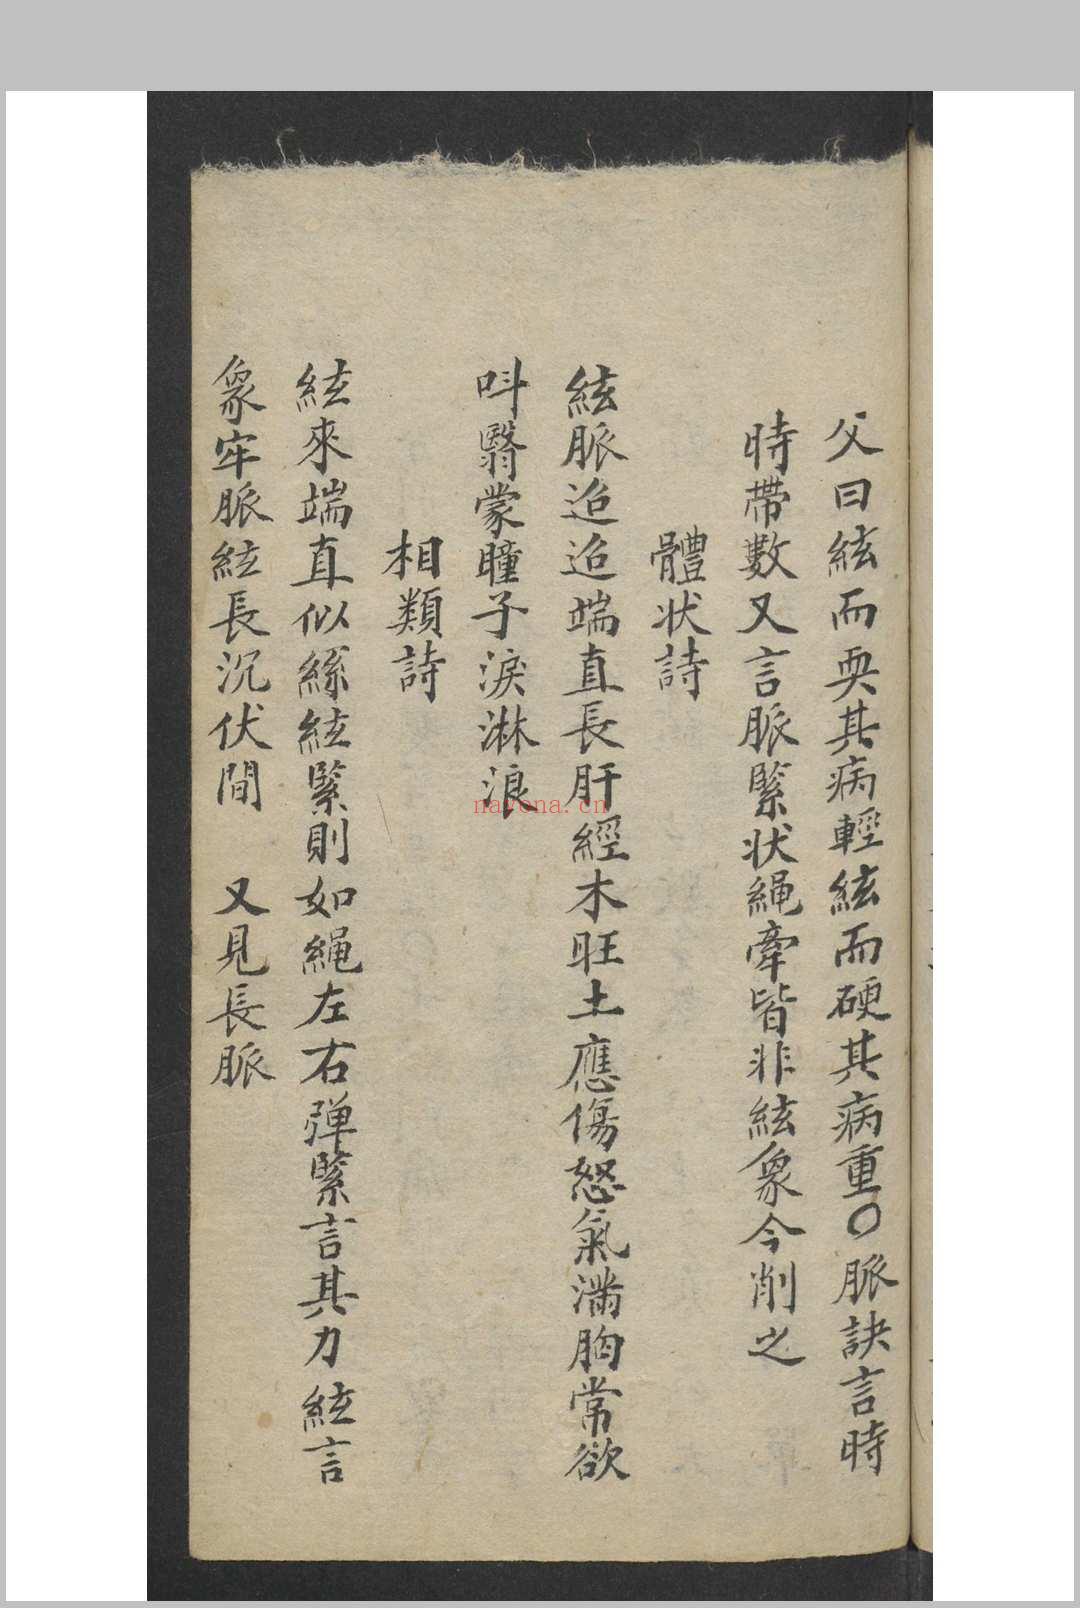 父曰絃而耎其病輕絃而硬其病重〇脈訣言時
時帶數又言脈緊狀繩牽皆非絃象今削之
體狀詩
絃脈迢迢端直長肝經木旺土應傷怒氣滿胸常欲
呌翳蒙瞳子淚淋浪
相類詩
絃來端直似絲絃緊則如繩左右弾緊言其力絃言
象牢脈絃長沉伏間 又見長脈
nayona.cn